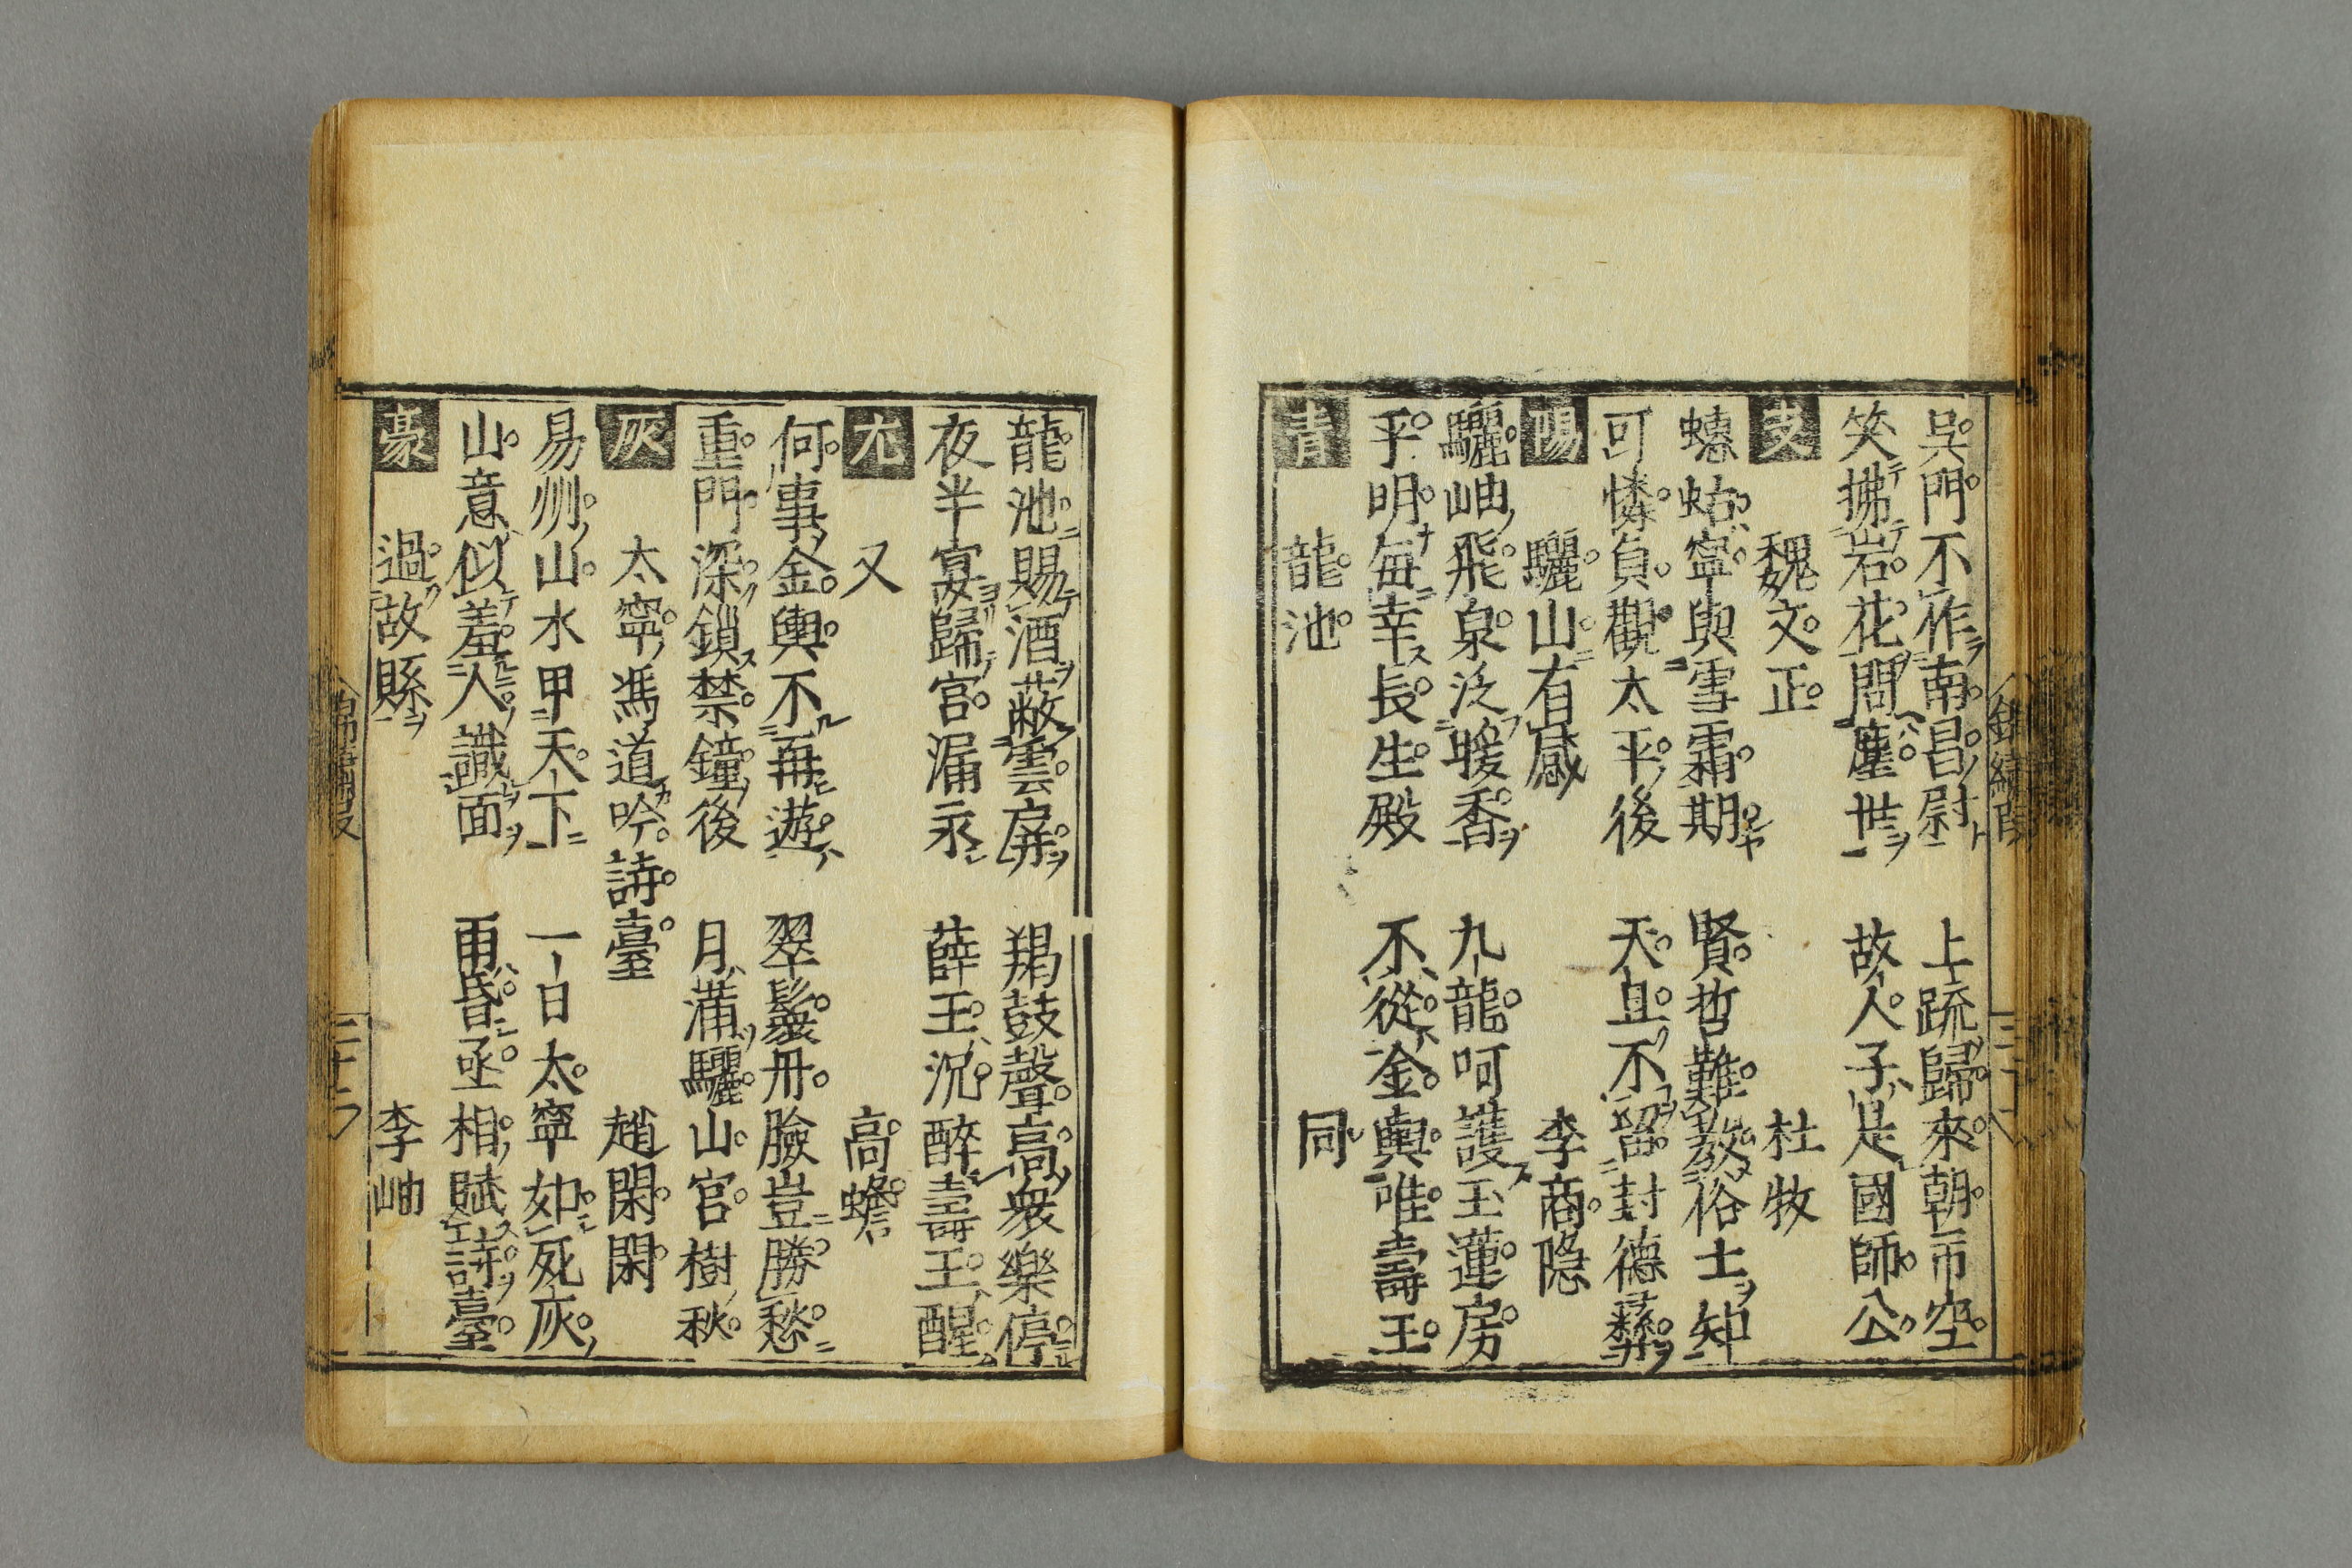 呉門不作南昌尉　上疏歸來朝市空
笑拂岩花問塵世　故人子是國師公
支　魏文正　杜牧
蟪蛄寧與雪霜期　賢哲難教俗士知
可憐負觀太平後　天且不留封德彝
陽　驪山有感　李商隐
驪岫飛泉泛暖香　九龍呵護玉蓮房
乎明毎幸長生殿　不從金輿唯壽王
青　龍池　同
龍池賜酒蔽雲屏　羯鼓聲高衆樂停
夜半宴歸宮漏永　薛王沉醉壽王醒
尤　又　高蟾
何事金輿不再遊　翠鬟丹臉豈勝愁
重門深鎖禁鐘後　月滿驪山宮樹秋
灰　太寧馮道吟詩臺　趙閑閑
易州山水甲天下　一日太寧如死灰
山意似羞人識面　雨昏丞相賦詩臺
豪　過故縣　李岫